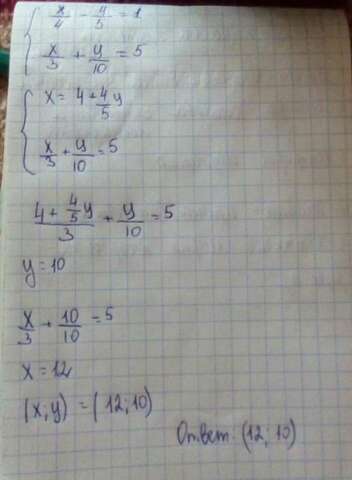 x/4 - y/5 = 1
x/3 + y/10 = 5
x = 4 + 4/5 y
x/3 + y/10 = 5
(4 + 4/5 y)/3 + y/10 = 5
y = 10
x/3 + 10/10 = 5
x = 12
(x; y) = (12; 10)
Ответ: (12; 10)